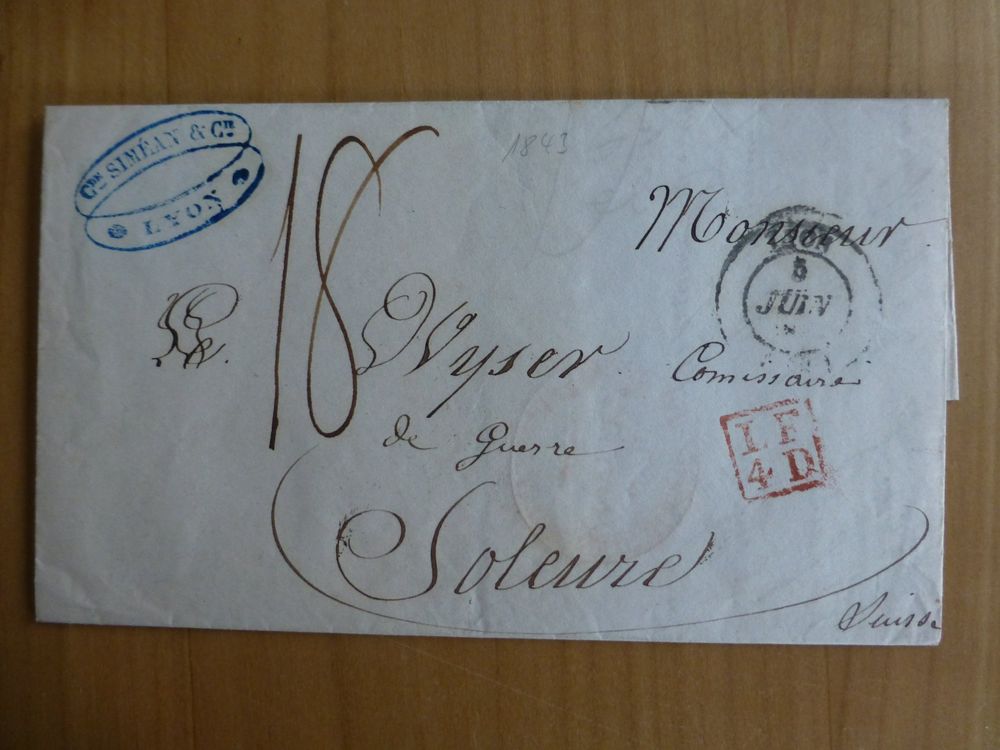 Gde SIMÉAN & Cie
LYON
18
1843
Monsieur
5
JUIN
Wyser
Comissaire
de Guerre
L. F.
4 D
Soleure
Suisse